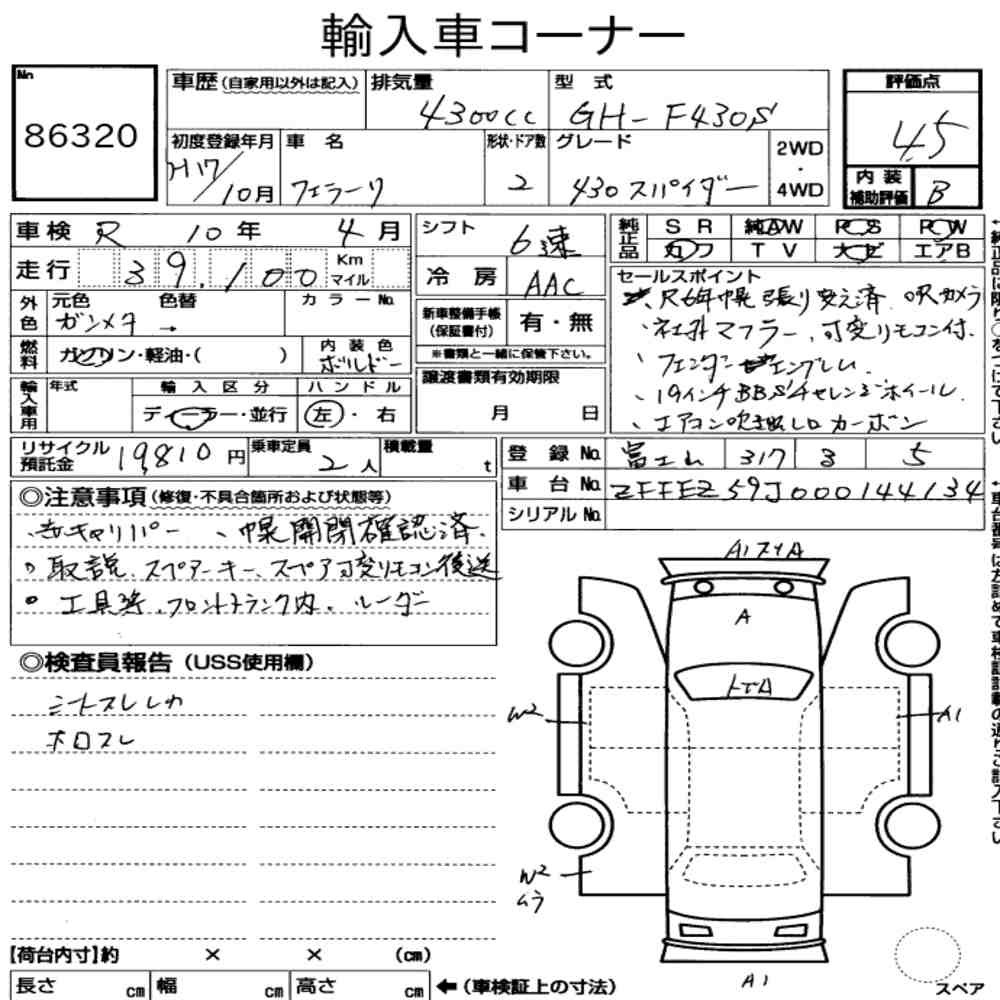 輸入車コーナー
No
86320
車歴(自家用以外は記入)
排気量
4300cc
型式
GH-F430S
評価点
4.5
初度登録年月
H17/10月
車名
フェラーリ
形状・ドア数
2
グレード
430スパイダー
2WD
・
4WD
内装
補助評価
B
車検 R 10年 4月
走行 39,100 Km マイル
シフト
6速
冷房
AAC
純正品
SR 純AW PS PW
カワ TV ナビ エアB
外色
元色
ガンメタ
色替
→
カラーNo.
新車整備手帳
(保証書付)
有・無
※書類と一緒に保管下さい。
セールスポイント
R6年幌張り変え済
社外マフラー、可変リモコン付.
フェンダーエンブレム.
19インチBBSチャレンジホイール.
エアコン吹き出し口カーボン
燃料
ガソリン・軽油・( )
内装色
ボルドー
輸入車用
年式
輸入区分
ディーラー・並行
ハンドル
左・右
譲渡書類有効期限
月 日
リサイクル
預託金
19,810円
乗車定員
2人
積載量
t
登録No.
富士山 317 る 5
車台No.
ZFFEZ59J000144134
シリアルNo.
◎注意事項(修復・不具合箇所および状態等)
、赤キャリパー 、幌開閉確認済.
取説、スペアーキー、スペア可変リモコン後送
工具等、フロントトランク内. レーダー
◎検査員報告(USS使用欄)
シートスレシワ
ホロスレ
A1スリA
A
トビA
W2
A1
W2
ムラ
A1
スペア
【荷台内寸】約 × × (cm)
長さ cm 幅 cm 高さ cm ←(車検証上の寸法)